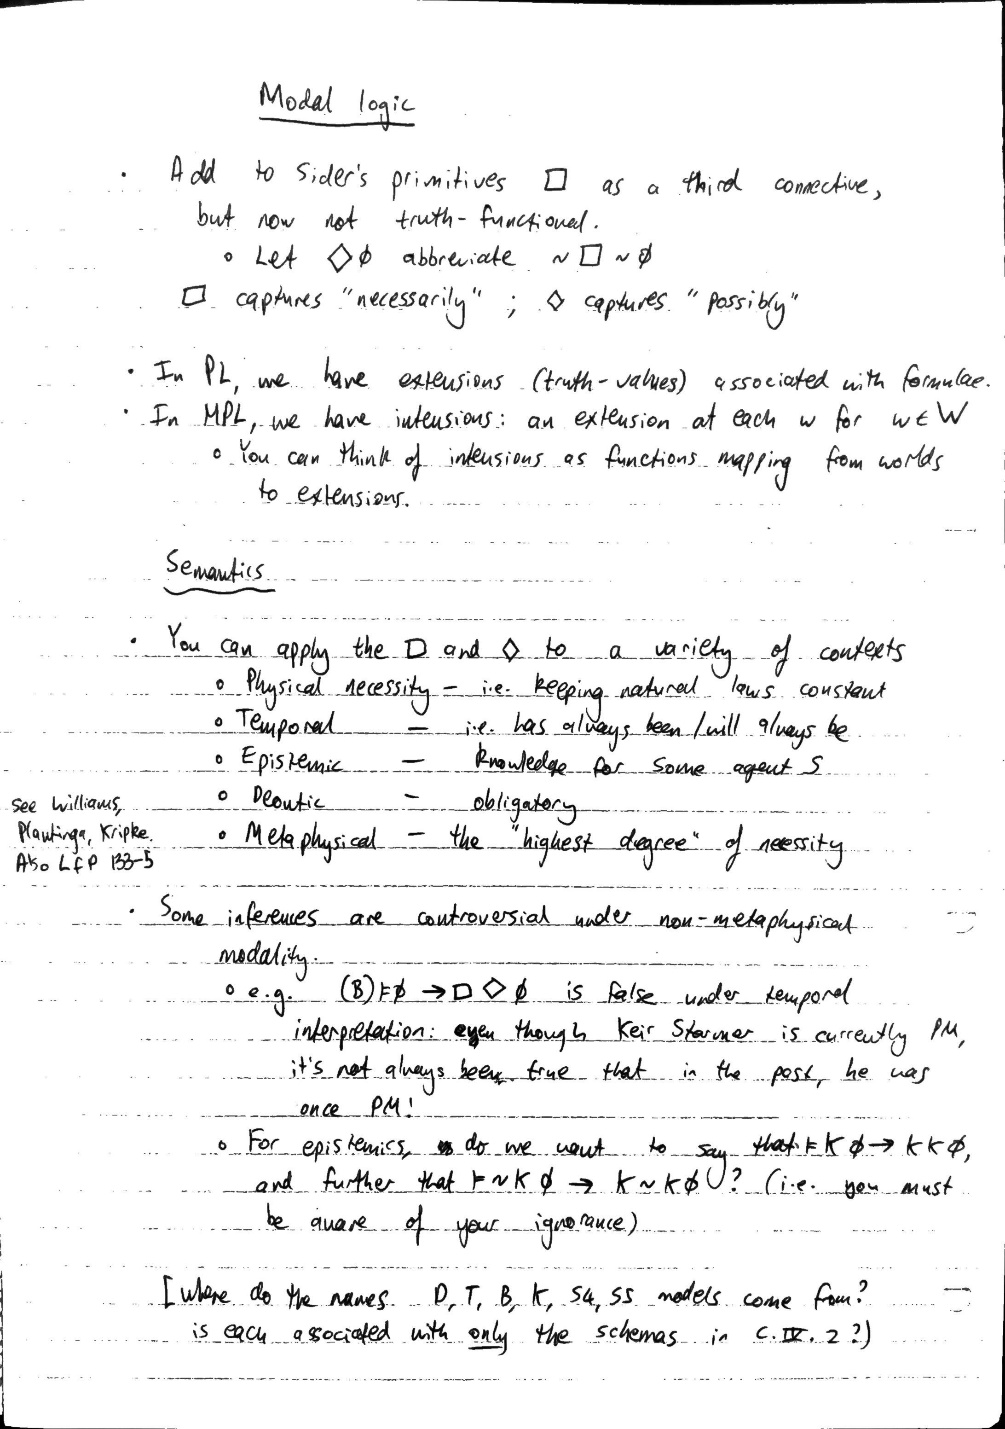 Modal logic
• Add to Sider's primitives □ as a third connective,
but now not truth-functional.
◦ Let ◇φ abbreviate ~□~φ
□ captures "necessarily" ; ◇ captures "possibly"
• In PL, we have extensions (truth-values) associated with formulae.
• In MPL, we have intensions: an extension at each w for w∈W
◦ You can think of intensions as functions mapping from worlds
to extensions.
Semantics
• You can apply the □ and ◇ to a variety of contexts
◦ Physical necessity – i.e. keeping natural laws constant
◦ Temporal – i.e. has always been/will always be
◦ Epistemic – knowledge for some agent S
◦ Deontic – obligatory
◦ Metaphysical – the "highest degree" of necessity
see Williams,
Plantinga, Kripke.
Also LfP 133-5
• Some inferences are controversial under non-metaphysical
modality.
◦ e.g. (B) ⊨φ → □◇φ is false under temporal
interpretation: even though Keir Starmer is currently PM,
it's not always been true that in the past, he was
once PM!
◦ For epistemics, do we want to say that ⊨Kφ → KKφ,
and further that ⊨~Kφ → K~Kφ? (i.e. you must
be aware of your ignorance)
[Where do the names D, T, B, K, S4, S5 models come from?
is each associated with only the schemas in C.IV.2?)